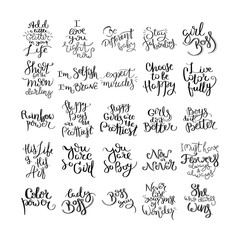 Add
own
letter
Life
I
love
you
right
now
Be
different
baby
Stay
Young
girl
Boss
Shoot
for the
moon
darling
I'm Selfish
I'm Brave
expect
miracles
Choose
to be
Happy
Live
color
fully
Rainbow
power
Happy
Boys
are the
Prettiest
Happy
Girls are
the
Prettiest
Girls
do it
Better
Boys
do it
Better
His Life
is His
Art
you
are So
Girl
you
are So
Boy
Now
or
Never
I must have
Flowers
always
Color
power
lady
Boss
Boss
Never
lose
your
Sense of
Wonder
She
who dares
Wins